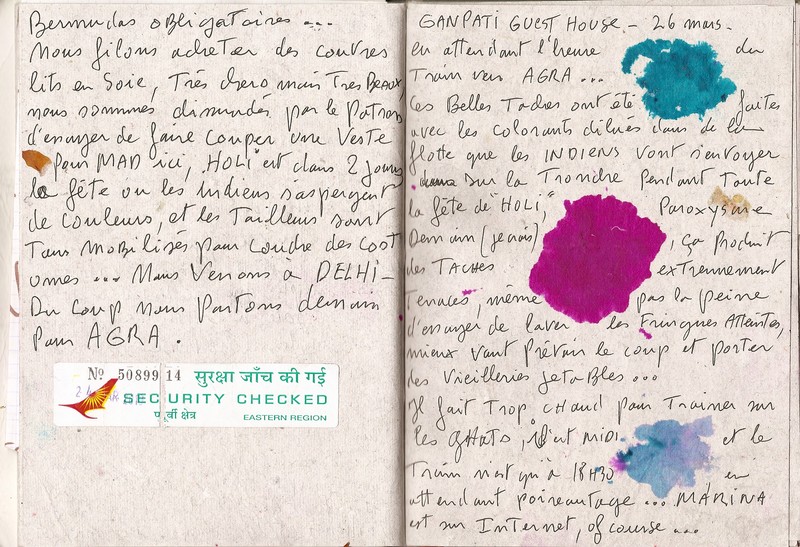 Bermudas obligatoires ...
Nous filons acheter des couvres
lits en Soie, Très chers mais Tres BEAUX,
nous sommes dissuadés par le Patron
d'essayer de faire couper une Veste
Pour MAD ici, "HOLI" est dans 2 jours
la fête ou les indiens s'aspergent
de couleurs, et les Tailleurs sont
Tous Mobilisés pour coudre des cost
umes ... Nous Verrons à DELHI -
Du coup nous partons demain
Pour AGRA.
No 50899 14 सुरक्षा जाँच की गई
SECURITY CHECKED
पूर्वी क्षेत्र EASTERN REGION
GANPATI GUEST HOUSE - 26 mars.
en attendant l'heure du
Train vers AGRA ...
Ces Belles Taches ont été faites
avec les colorants dilués dans de la
flotte que les INDIENS vont s'envoyer
sur la Tronche Pendant Toute
la fête de "HOLI", Paroxysme
Demain (jeudi), ça Produit
des TACHES extrêmement
Tenaces, même pas la peine
d'essayer de laver les Fringues Atteintes,
mieux Vaut Prévoir le coup et porter
des Vieilleries Jetables ...
Il fait Trop chaud pour Trainer sur
les GHATS, il est MIDI et le
Train n'est qu'à 18H30, en
attendant poireautage ... MARINA
est sur Internet, of course ...